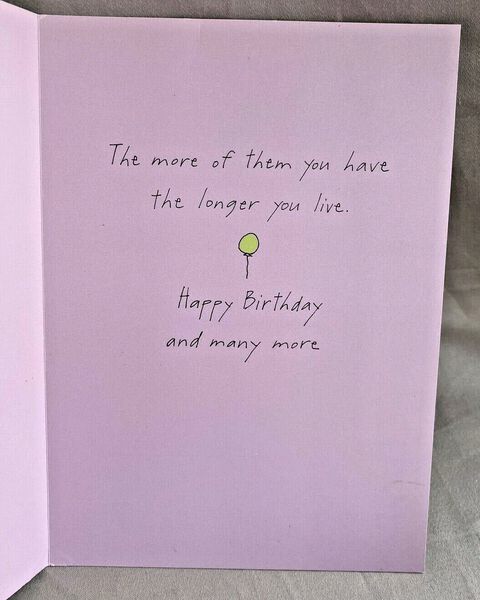 The more of them you have
the longer you live.
Happy Birthday
and many more